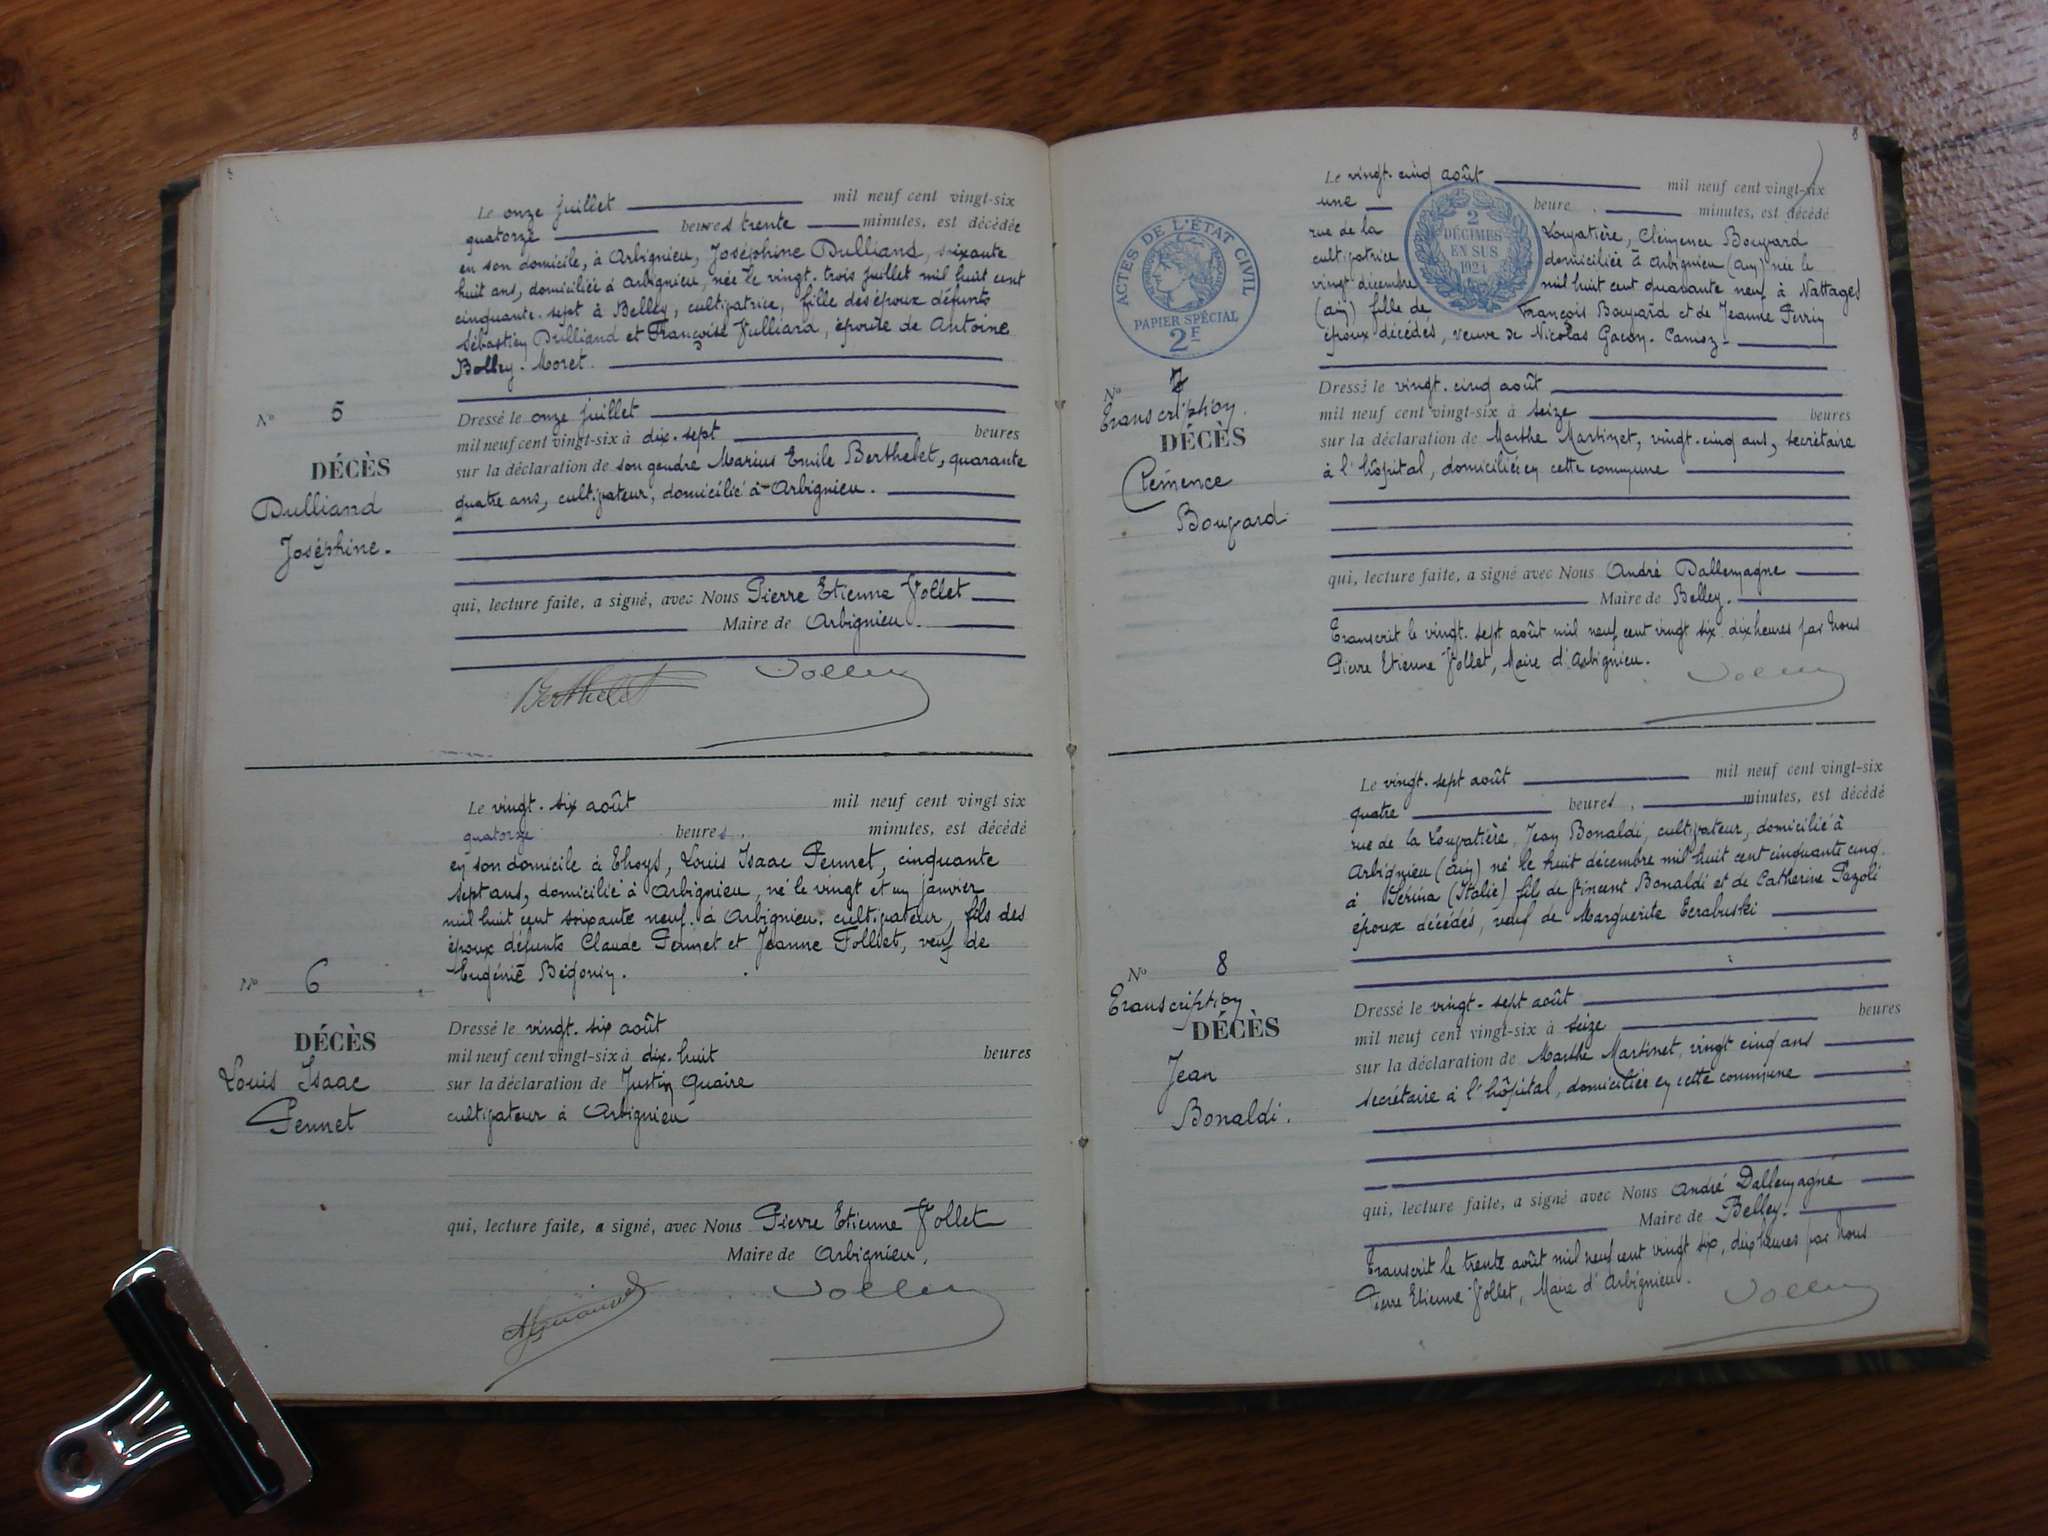 Le onze juillet mil neuf cent vingt-six
quatorze heures trente minutes, est décédée
en son domicile, à Arbignieu, Joséphine Dulliand, soixante
huit ans, domiciliée à Arbignieu, née le vingt-trois juillet mil huit cent
cinquante-sept à Belley, cultivatrice, fille des époux défunts
Sébastien Dulliand et Françoise Vulliard, épouse de Antoine
Bolley-Moret.
N° 5
DÉCÈS
Dulliand
Joséphine.
Dressé le onze juillet
mil neuf cent vingt-six à dix-sept heures
sur la déclaration de son gendre Marius Emile Berthelet, quarante
quatre ans, cultivateur, domicilié à Arbignieu.
qui, lecture faite, a signé, avec Nous Pierre Etienne Vollet
Maire de Arbignieu.
Berthelet Vollet
Le vingt-six août mil neuf cent vingt six
quatorze heures minutes, est décédé
en son domicile à Thoys, Louis Isaac Pennet, cinquante
sept ans, domicilié à Arbignieu, né le vingt et un janvier
mil huit cent soixante neuf à Arbignieu, cultivateur, fils des
époux défunts Claude Pennet et Jeanne Folliet, veuf de
Eugénie Bégonin.
N° 6
DÉCÈS
Louis Isaac
Pennet
Dressé le vingt-six août
mil neuf cent vingt-six à dix-huit heures
sur la déclaration de Justin Quaire
cultivateur à Arbignieu
qui, lecture faite, a signé, avec Nous Pierre Etienne Vollet
Maire de Arbignieu.
Vollet
8
ACTES DE L'ÉTAT CIVIL
PAPIER SPÉCIAL
2F
2
DÉCIMES
EN SUS
1924
Le vingt-cinq août mil neuf cent vingt-six
une heure minutes, est décédé
rue de la Louvatière, Clémence Bouvard
cultivatrice domiciliée à Arbignieu (Ain) née le
vingt décembre mil huit cent quarante neuf à Nattages
(Ain) fille de François Bouvard et de Jeanne Perrin
époux décédés, veuve de Nicolas Gacon-Camoz.
N° 7
Transcription
DÉCÈS
Clémence
Bouvard
Dressé le vingt-cinq août
mil neuf cent vingt-six à seize heures
sur la déclaration de Marthe Martinet, vingt-cinq ans, secrétaire
à l'hôpital, domiciliée en cette commune
qui, lecture faite, a signé avec Nous André Dallemagne
Maire de Belley.
Transcrit le vingt-sept août mil neuf cent vingt six dix heures par Nous
Pierre Etienne Vollet, Maire d'Arbignieu.
Vollet
Le vingt-sept août mil neuf cent vingt-six
quatre heures, minutes, est décédé
rue de la Louvatière, Jean Bonaldi, cultivateur, domicilié à
Arbignieu (Ain) né le huit décembre mil huit cent cinquante cinq
à Sérina (Italie) fils de Vincent Bonaldi et de Catherine Pazoli
époux décédés, veuf de Marguerite Ecrabuski
N° 8
Transcription
DÉCÈS
Jean
Bonaldi.
Dressé le vingt-sept août
mil neuf cent vingt-six à seize heures
sur la déclaration de Marthe Martinet, vingt cinq ans
secrétaire à l'hôpital, domiciliée en cette commune
qui, lecture faite, a signé avec Nous André Dallemagne
Maire de Belley.
Transcrit le trente août mil neuf cent vingt six, dix heures par Nous
Pierre Etienne Vollet, Maire d'Arbignieu.
Vollet